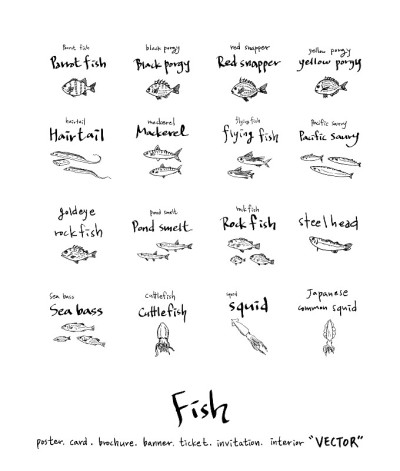 Parrot fish
Parrot fish
black porgy
Black porgy
red snapper
Red snapper
yellow porgy
yellow porgy
hairtail
Hairtail
mackerel
Mackerel
flying fish
flying fish
Pacific saury
Pacific saury
goldeye
rockfish
pond smelt
Pond smelt
rockfish
Rockfish
steelhead
Sea bass
Sea bass
cuttlefish
Cuttlefish
squid
squid
Japanese
common squid
Fish
poster. card. brochure. banner. ticket. invitation. interior "VECTOR"